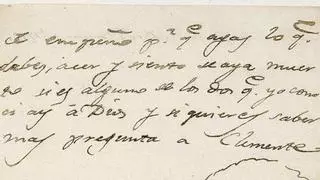 empeño pª qᵉ agas lo q.
debes, acer y siento se aya muer
to si es alguno de los dos qᵉ yo cono
ci ay á Dios y si quieres saber
mas pregunta a Clemente